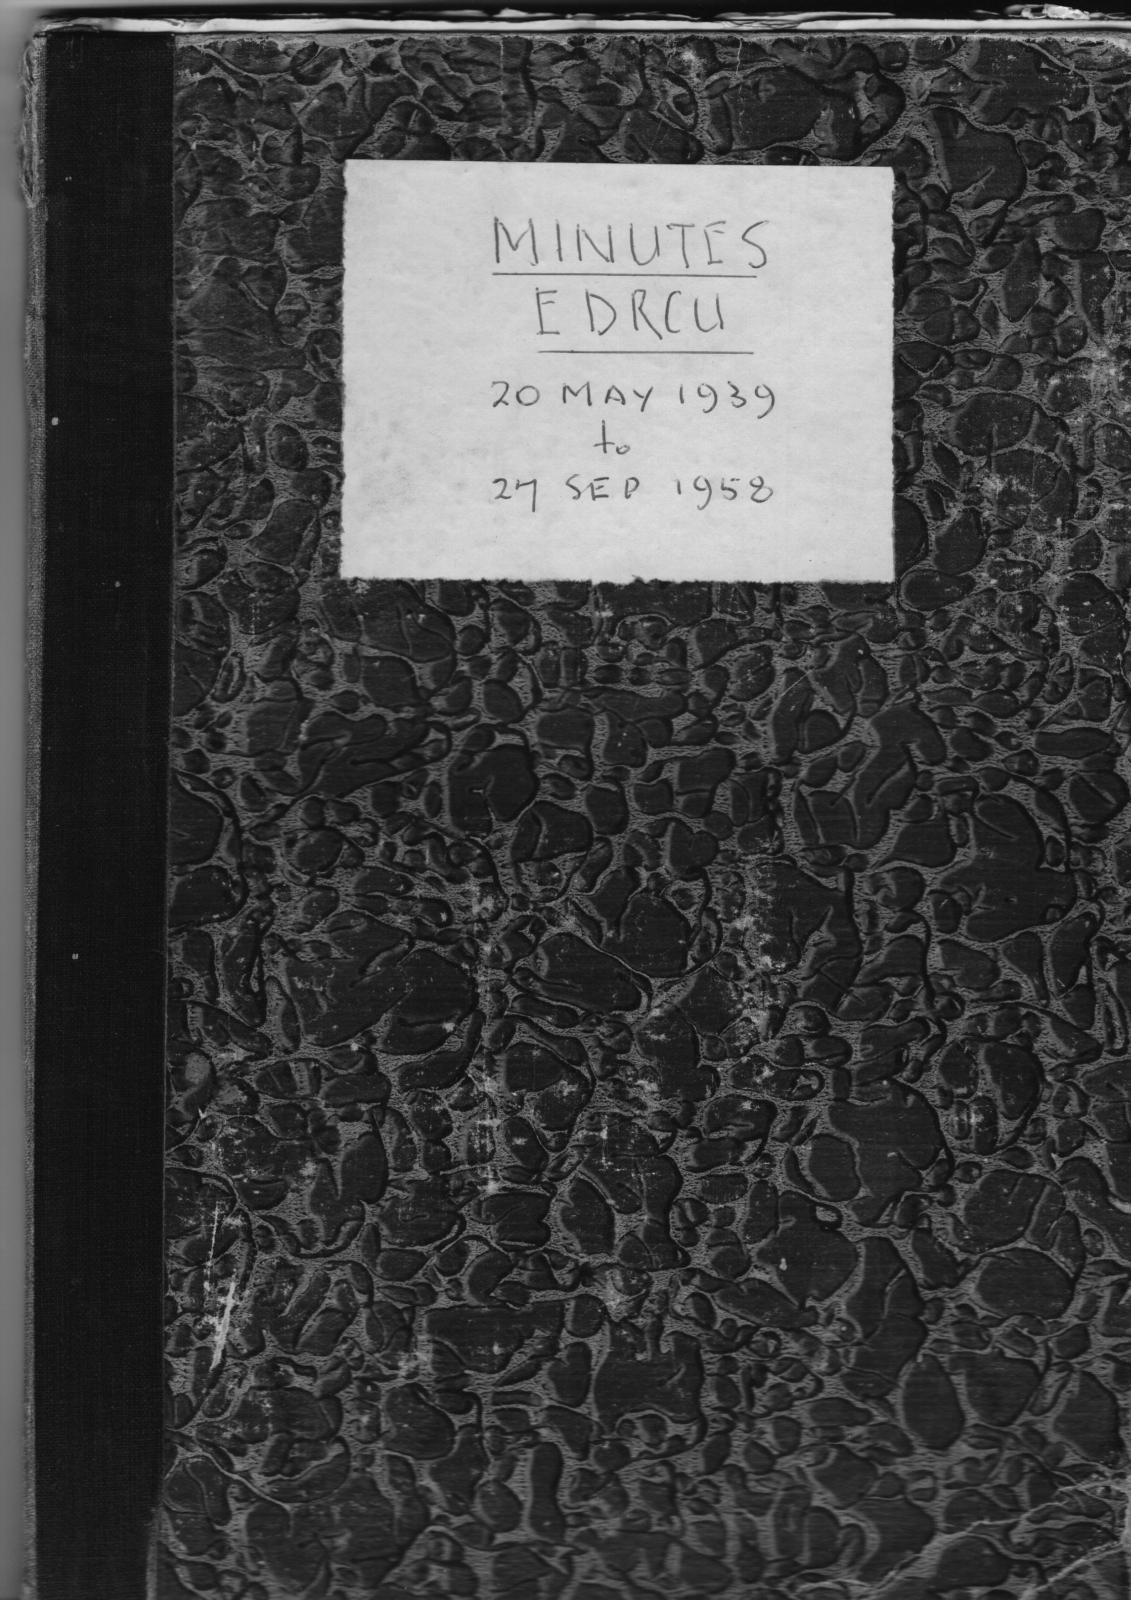 MINUTES
EDRCU
20 MAY 1939
to
27 SEP 1958